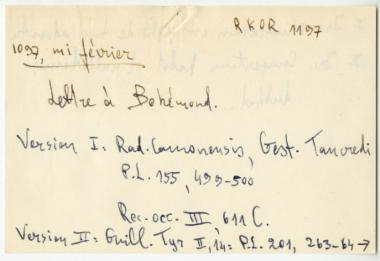 RKOR 1197
1097, mi février
Lettre à Bohémond.
Version I: Rad. Camonensis, Gest. Tancredi
P.L. 155, 499-500
Rec. occ. III, 611 C.
Version II: Guill. Tyr II, 14: P.L. 201, 263-64 →